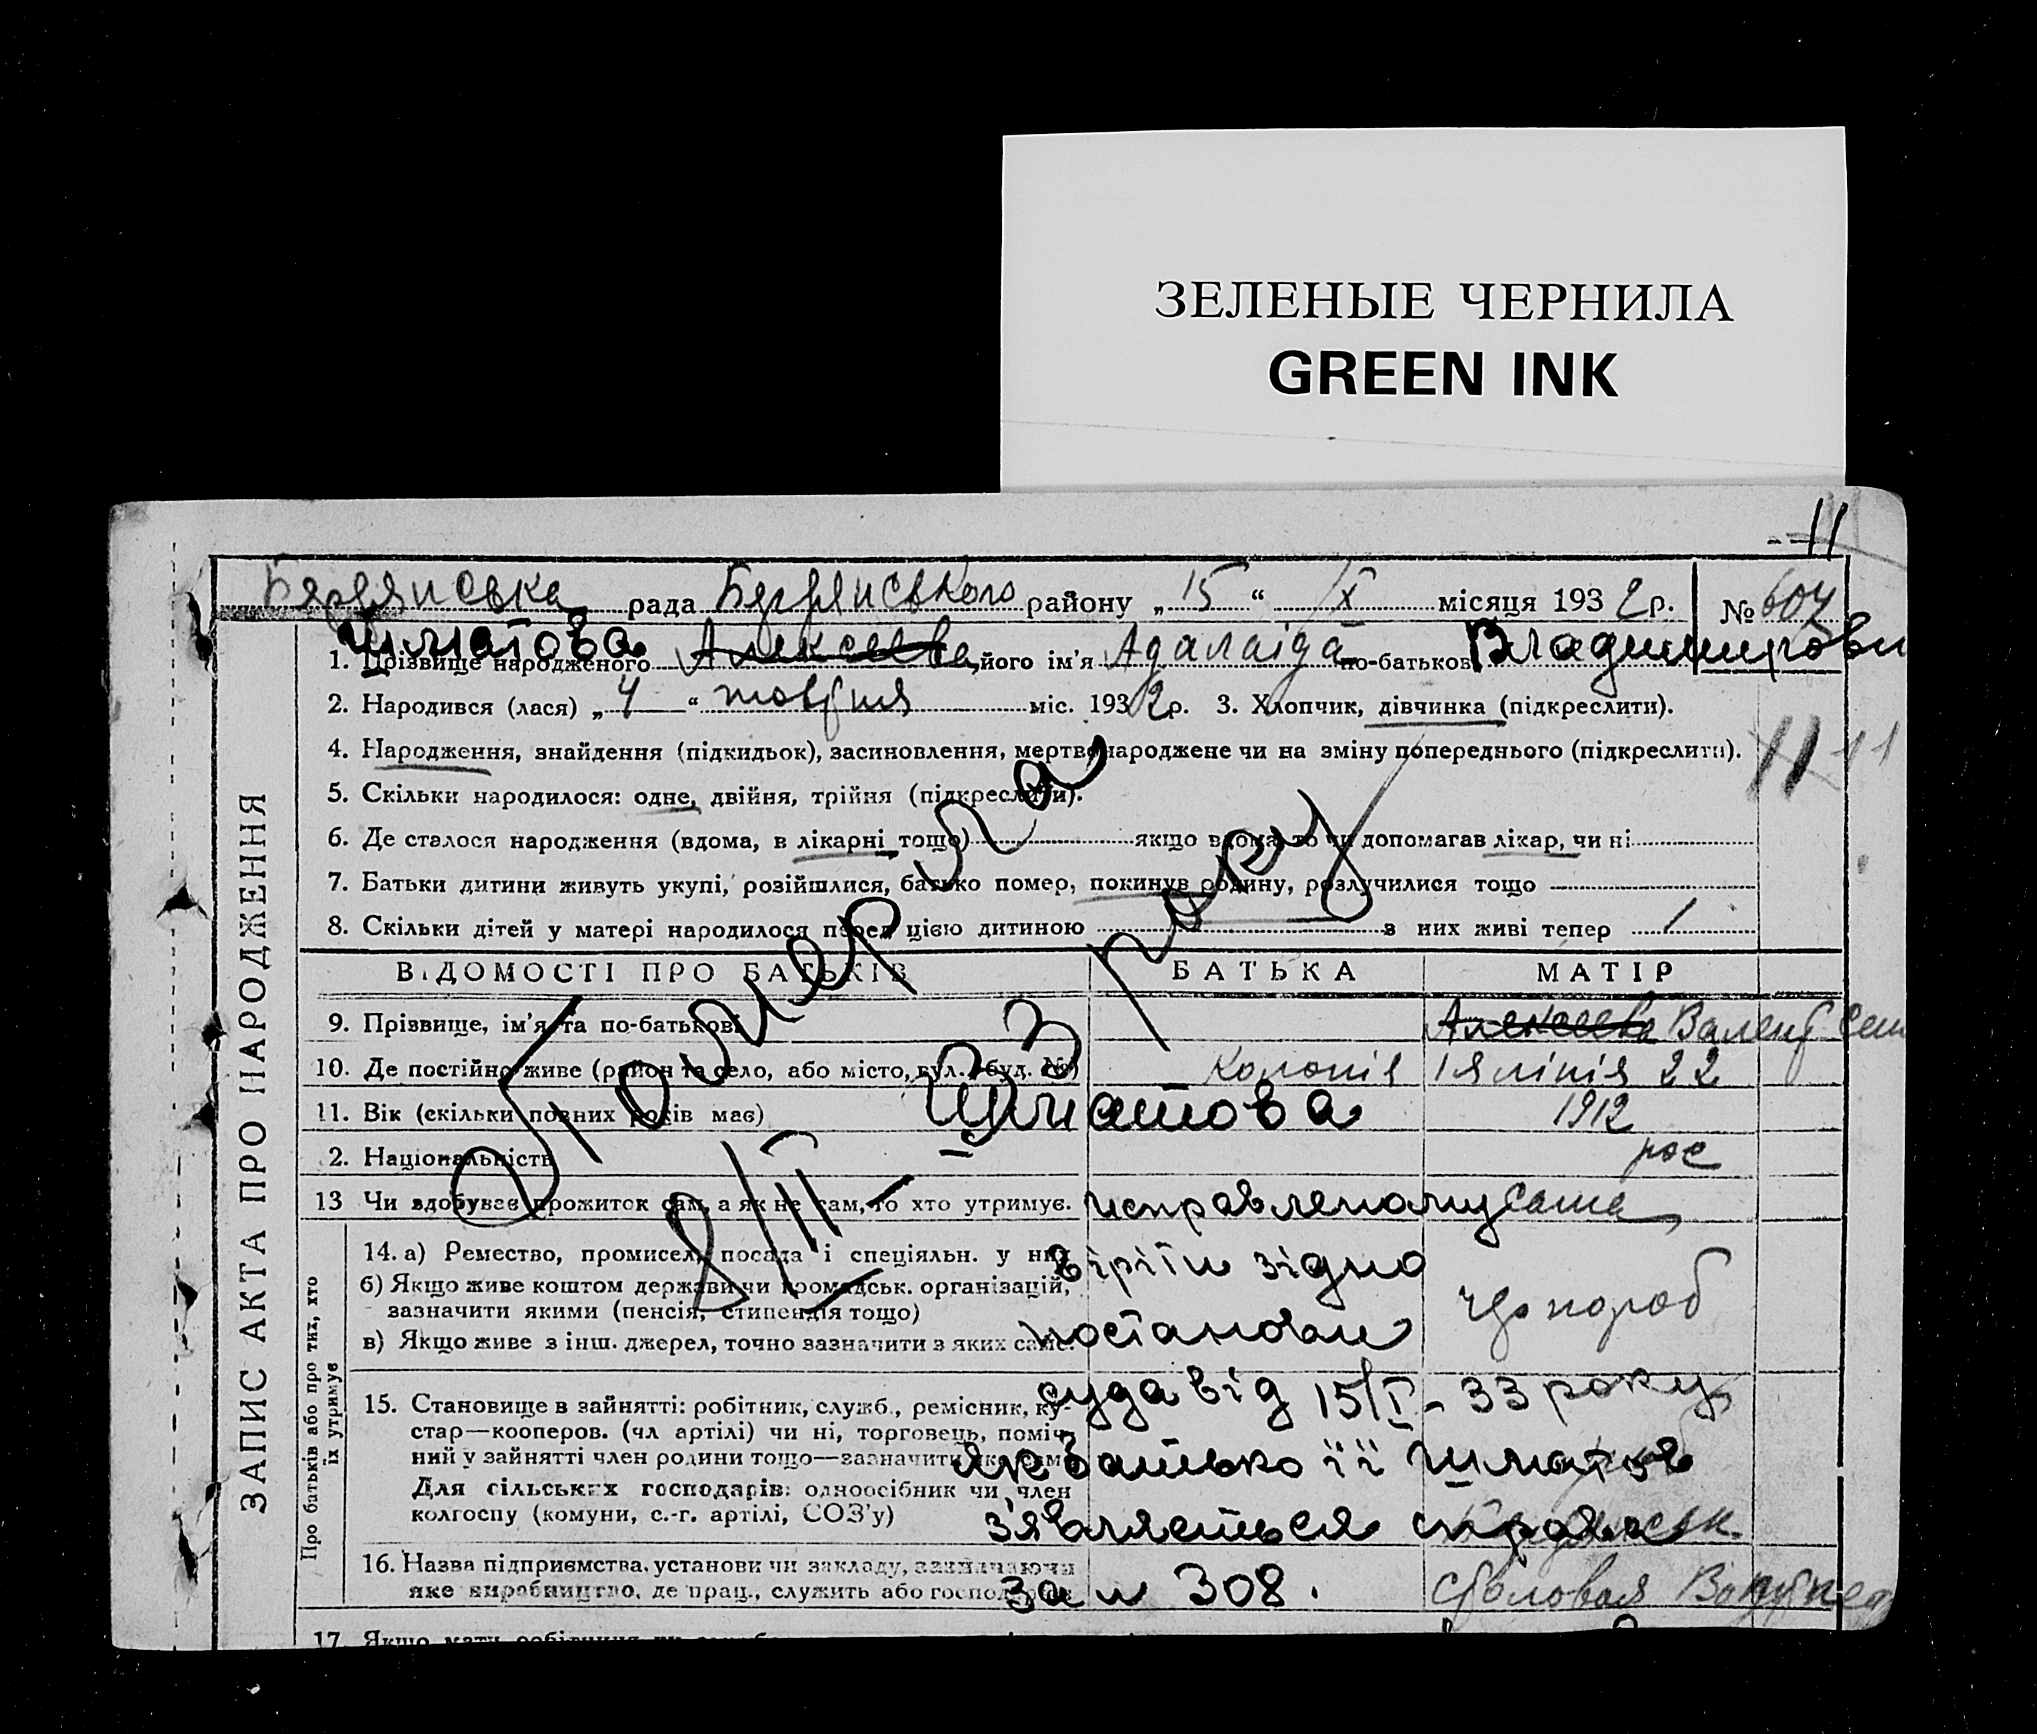 ЗЕЛЕНЫЕ ЧЕРНИЛА
GREEN INK
11
Бердянська рада Бердянського району „15“ X місяця 1932р. № 607
Алексеева його ім'я Адалаіда по-батькові
1. Прізвище народженого
2. Народився (лася) „4“ товтня міс. 1932р. 3. Хлопчик, дівчинка (підкреслити).
4. Народження, знайдення (підкидьок), засиновлення, мертвонароджене чи на зміну попереднього (підкреслити).
11
5. Скільки народилося: одне, двійня, трійня (підкреслити).
6. Де сталося народження (вдома, в лікарні тощо) якщо вдома, то чи допомагав лікар, чи ні
7. Батьки дитини живуть укупі, розійшлися, батько помер, покинув родину, розлучилися тощо
8. Скільки дітей у матері народилося перед цією дитиною з них живі тепер 1
ВІДОМОСТІ ПРО БАТЬКІВ БАТЬКА МАТІР
9. Прізвище, ім'я та по-батькові Алексеева Валент
10. Де постійно живе (район та село, або місто, вул., буд. №) Колонія 1я лінія 22
11. Вік (скільки повних років має) 1912
2. Національність рос
13 Чи вдобуває прожиток сам, а як не сам, то хто утримує. исправленому сама
14. а) Ремество, промисел, посада і спеціяльн. у них
зідно
б) Якщо живе коштом держави чи громадськ. організацій,
зазначити якими (пенсія, стипендія тощо) чорнороб
в) Якщо живе з інш. джерел, точно зазначити з яких саме. постанови
суда від 15/I - 33 року
15. Становище в зайнятті: робітник, служб., ремісник, ку-
стар—кооперов. (чл артілі) чи ні, торговець, поміч-
ний у зайнятті член родини тощо—зазначити яке саме
як батько її
Для сільських господарів: одноосібник чи член
колгоспу (комуни, с.-г. артілі, СОЗ'у)
зявляється справа
16. Назва підприємства, установи чи закладу, зазначаючи
яке виробництво, де прац., служить або
за № 308. столовая
17. Якщо мати робітниця
ЗАПИС АКТА ПРО НАРОДЖЕННЯ
Про батьків або про тих, хто
їх утримує